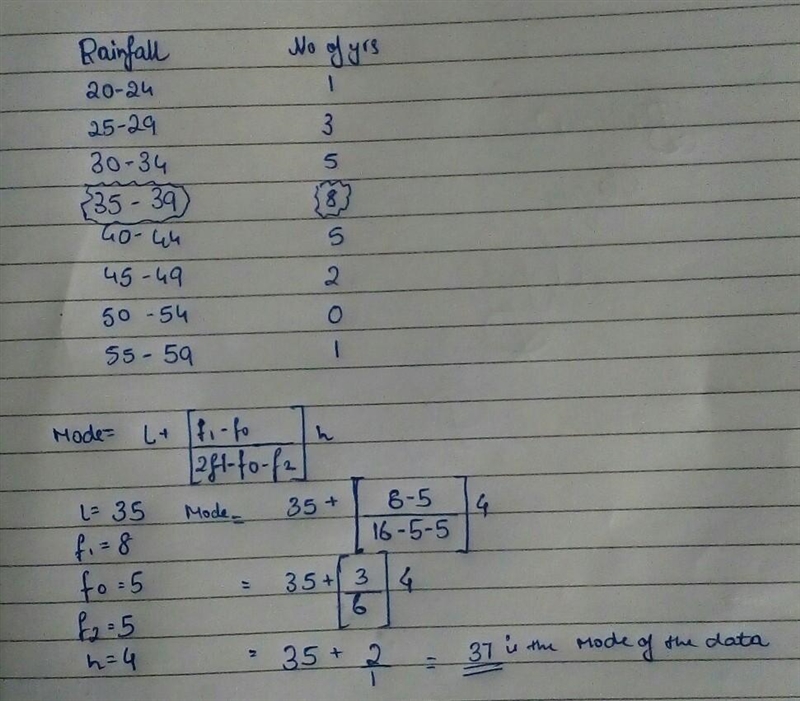 Rainfall No of yrs
20-24 1
25-29 3
30-34 5
35-39 8
40-44 5
45-49 2
50-54 0
55-59 1
Mode = l+ [f1-f0 / 2f1-f0-f2] h
l= 35 Mode = 35 + [8-5 / 16-5-5] 4
f1=8
f0=5 = 35+ [3/6] 4
f2=5
h=4 = 35 + 2/1 = 37 is the Mode of the data